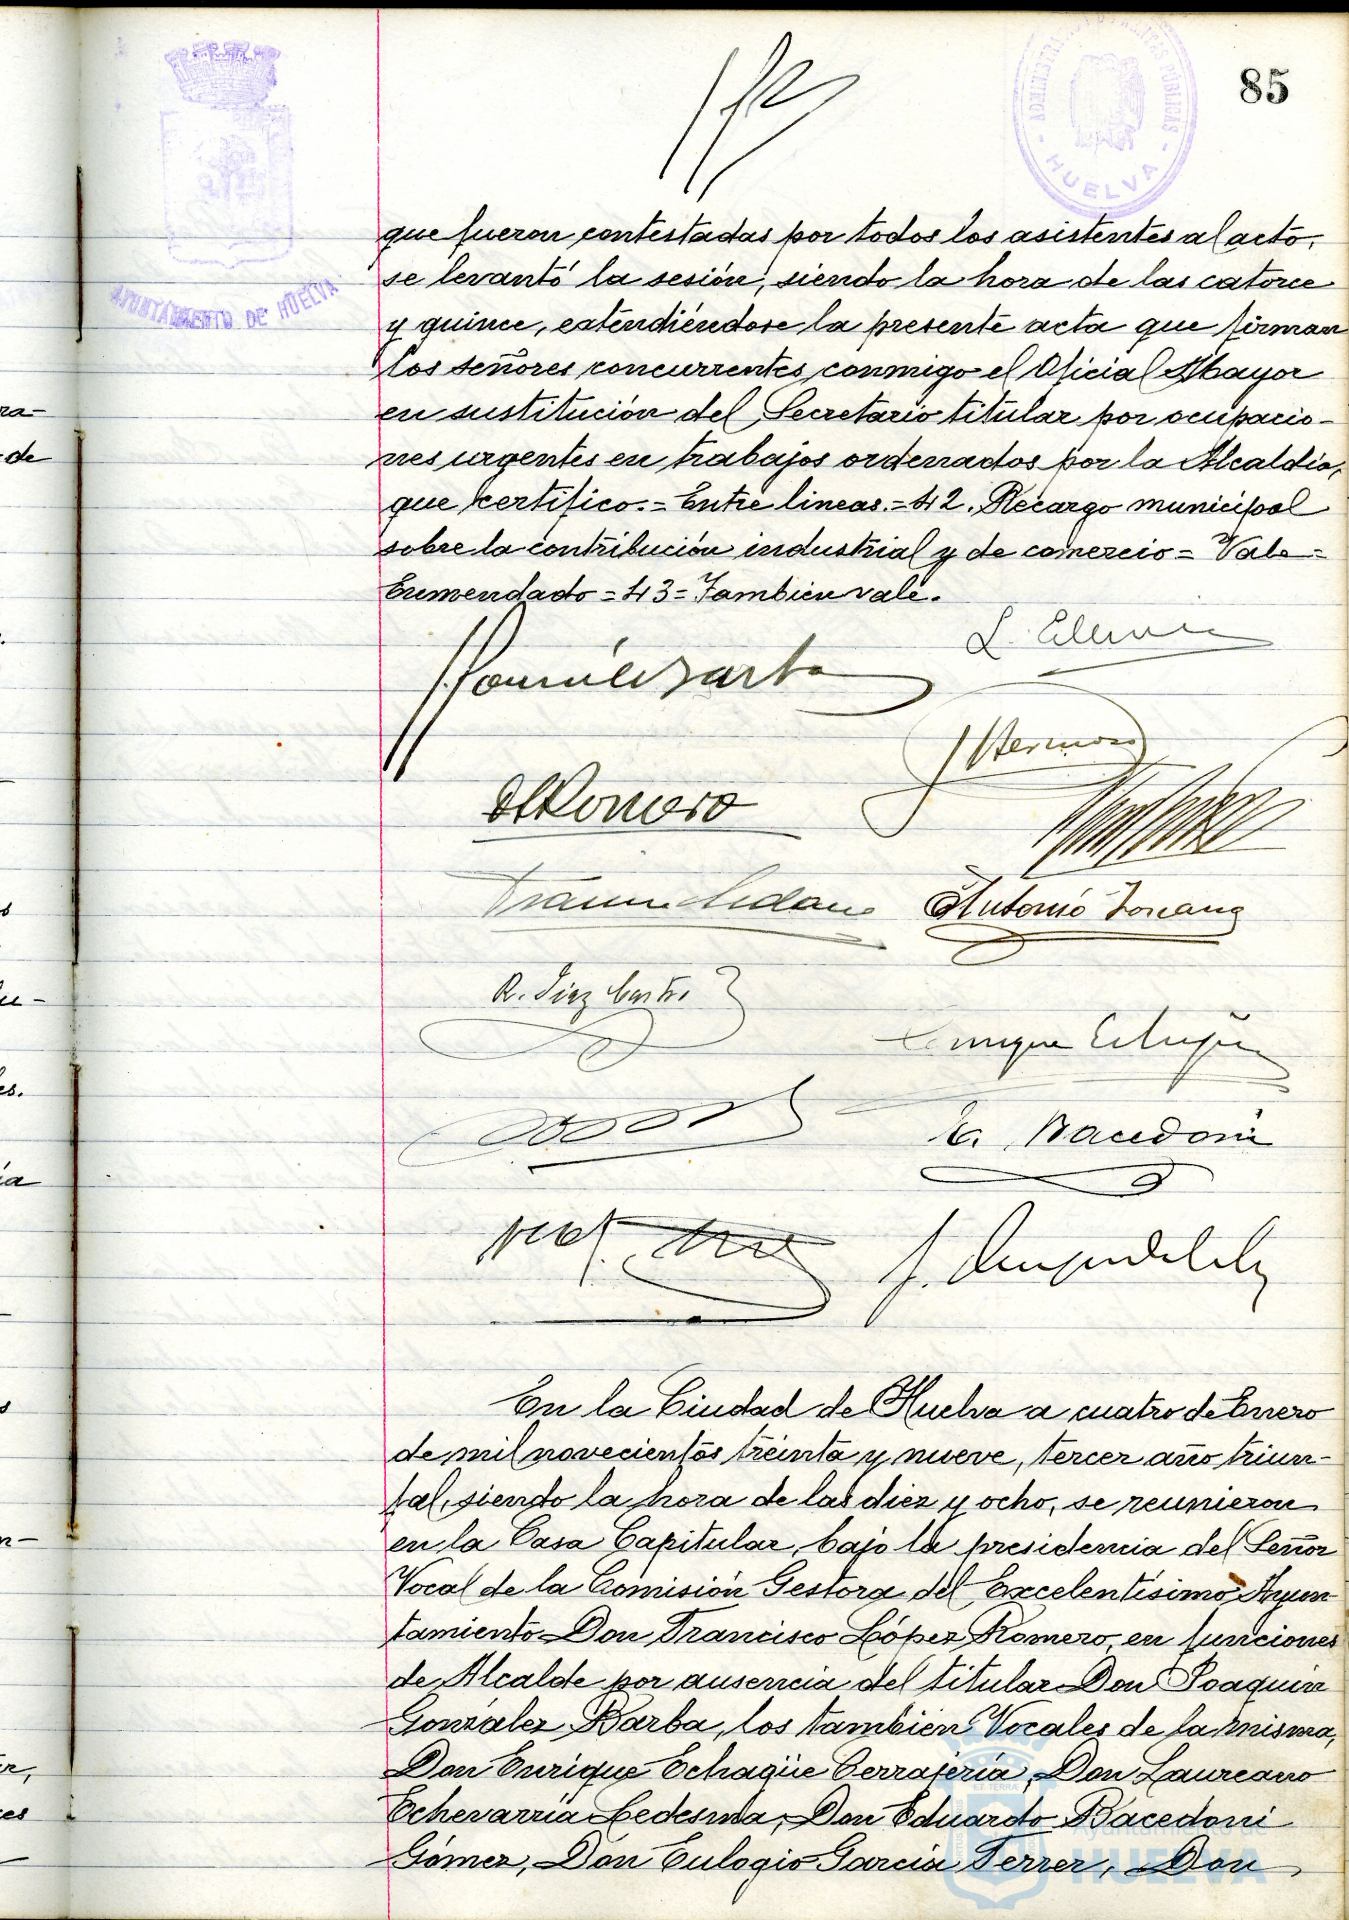 85
ADMINISTRA PÚBLICAS
HUELVA
AYUNTAMIENTO DE HUELVA
que fueron contestadas por todos los asistentes al acto,
se levantó la sesión, siendo la hora de las catorce
y quince, extendiéndose la presente acta que firman
los señores concurrentes conmigo el Oficial Mayor
en sustitución del Secretario titular por ocupacio-
nes urgentes en trabajos ordenados por la Alcaldía,
que certifico.= Entre lineas.= 42. Recargo municipal
sobre la contribución industrial y de comercio = Vale =
Enmendado = 43 = Tambien vale.
Barba
J Hermoso
Romero
Antonio Toscano
R. Diaz Castro
Enrique Echagüe
E. Bacedoni
En la Ciudad de Huelva a cuatro de Enero
de mil novecientos treinta y nueve, tercer año triun-
fal, siendo la hora de las diez y ocho, se reunieron
en la Casa Capitular, bajo la presidencia del Señor
Vocal de la Comisión Gestora del Excelentísimo Ayun-
tamiento Don Francisco López Romero, en funciones
de Alcalde por ausencia del titular Don Joaquin
González Barba, los tambien Vocales de la misma,
Don Enrique Echagüe Cerrajería, Don Laureano
Echevarría Ledesma, Don Eduardo Bacedoni
Gómez, Don Eulogio García Ferrer, Don
Ayuntamiento de
HUELVA
ra-
de
es.